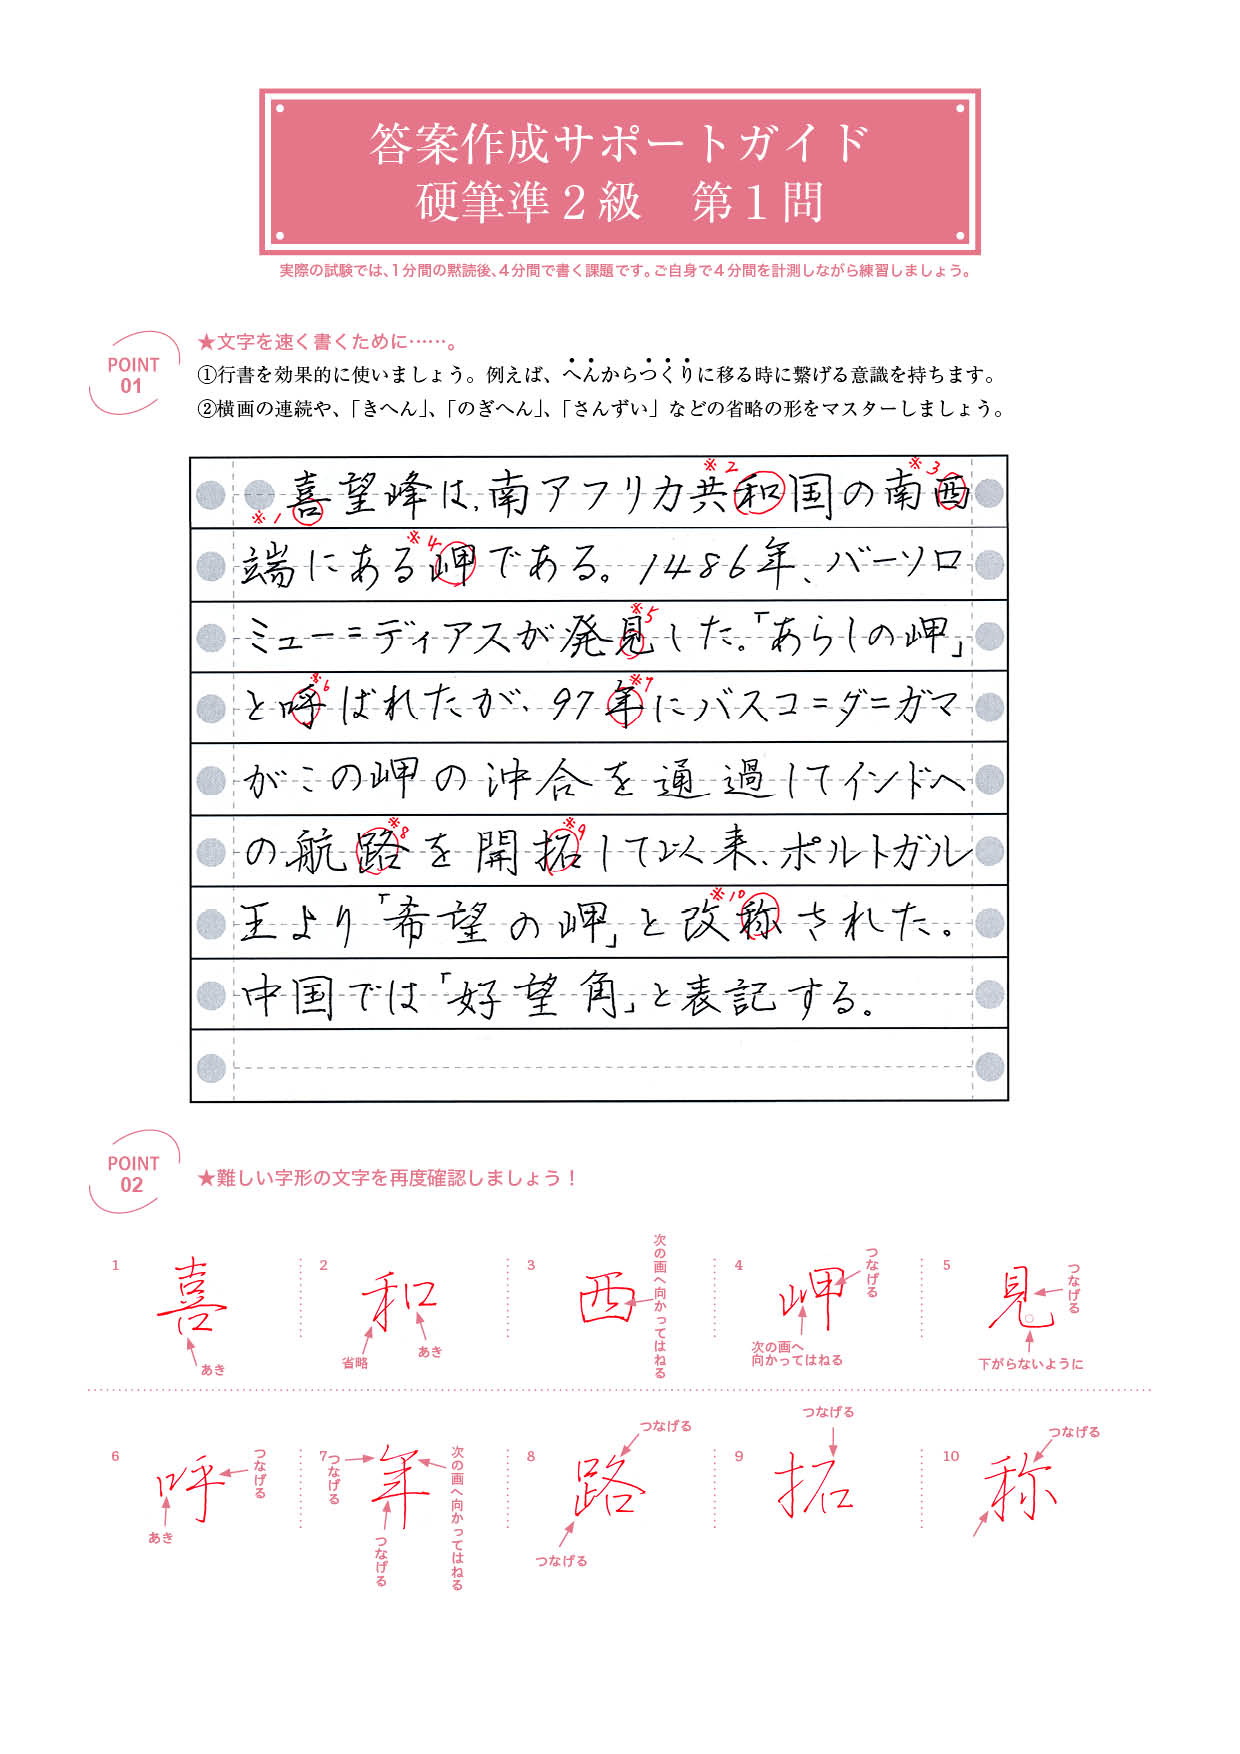 答案作成サポートガイド
硬筆準２級　第１問
実際の試験では、1分間の黙読後、4分間で書く課題です。ご自身で4分間を計測しながら練習しましょう。
POINT
01
★文字を速く書くために……。
①行書を効果的に使いましょう。例えば、へんからつくりに移る時に繋げる意識を持ちます。
②横画の連続や、「きへん」、「のぎへん」、「さんずい」などの省略の形をマスターしましょう。
※1 ※2 ※3
喜望峰は、南アフリカ共和国の南西
※4
端にある岬である。1486年、バーソロ
※5
ミュー＝ディアスが発見した。「あらしの岬」
※6 ※7
と呼ばれたが、97年にバスコ＝ダ＝ガマ
がこの岬の沖合を通過してインドへ
※8 ※9
の航路を開拓して以来、ポルトガル
※10
王より「希望の岬」と改称された。
中国では「好望角」と表記する。
POINT
02
★難しい字形の文字を再度確認しましょう！
1 喜 あき
2 和 省略 あき
3 西 次の画へ向かってはねる
4 岬 つなげる 次の画へ向かってはねる
5 見 つなげる 下がらないように
6 呼 つなげる あき
7 年 つなげる 次の画へ向かってはねる つなげる
8 路 つなげる つなげる
9 拓 つなげる
10 称 つなげる